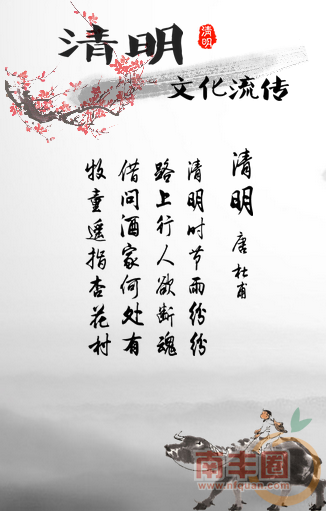 清明
清明
文化流传
清明
唐 杜甫
清明时节雨纷纷
路上行人欲断魂
借问酒家何处有
牧童遥指杏花村
南丰圈
www.nfquan.com